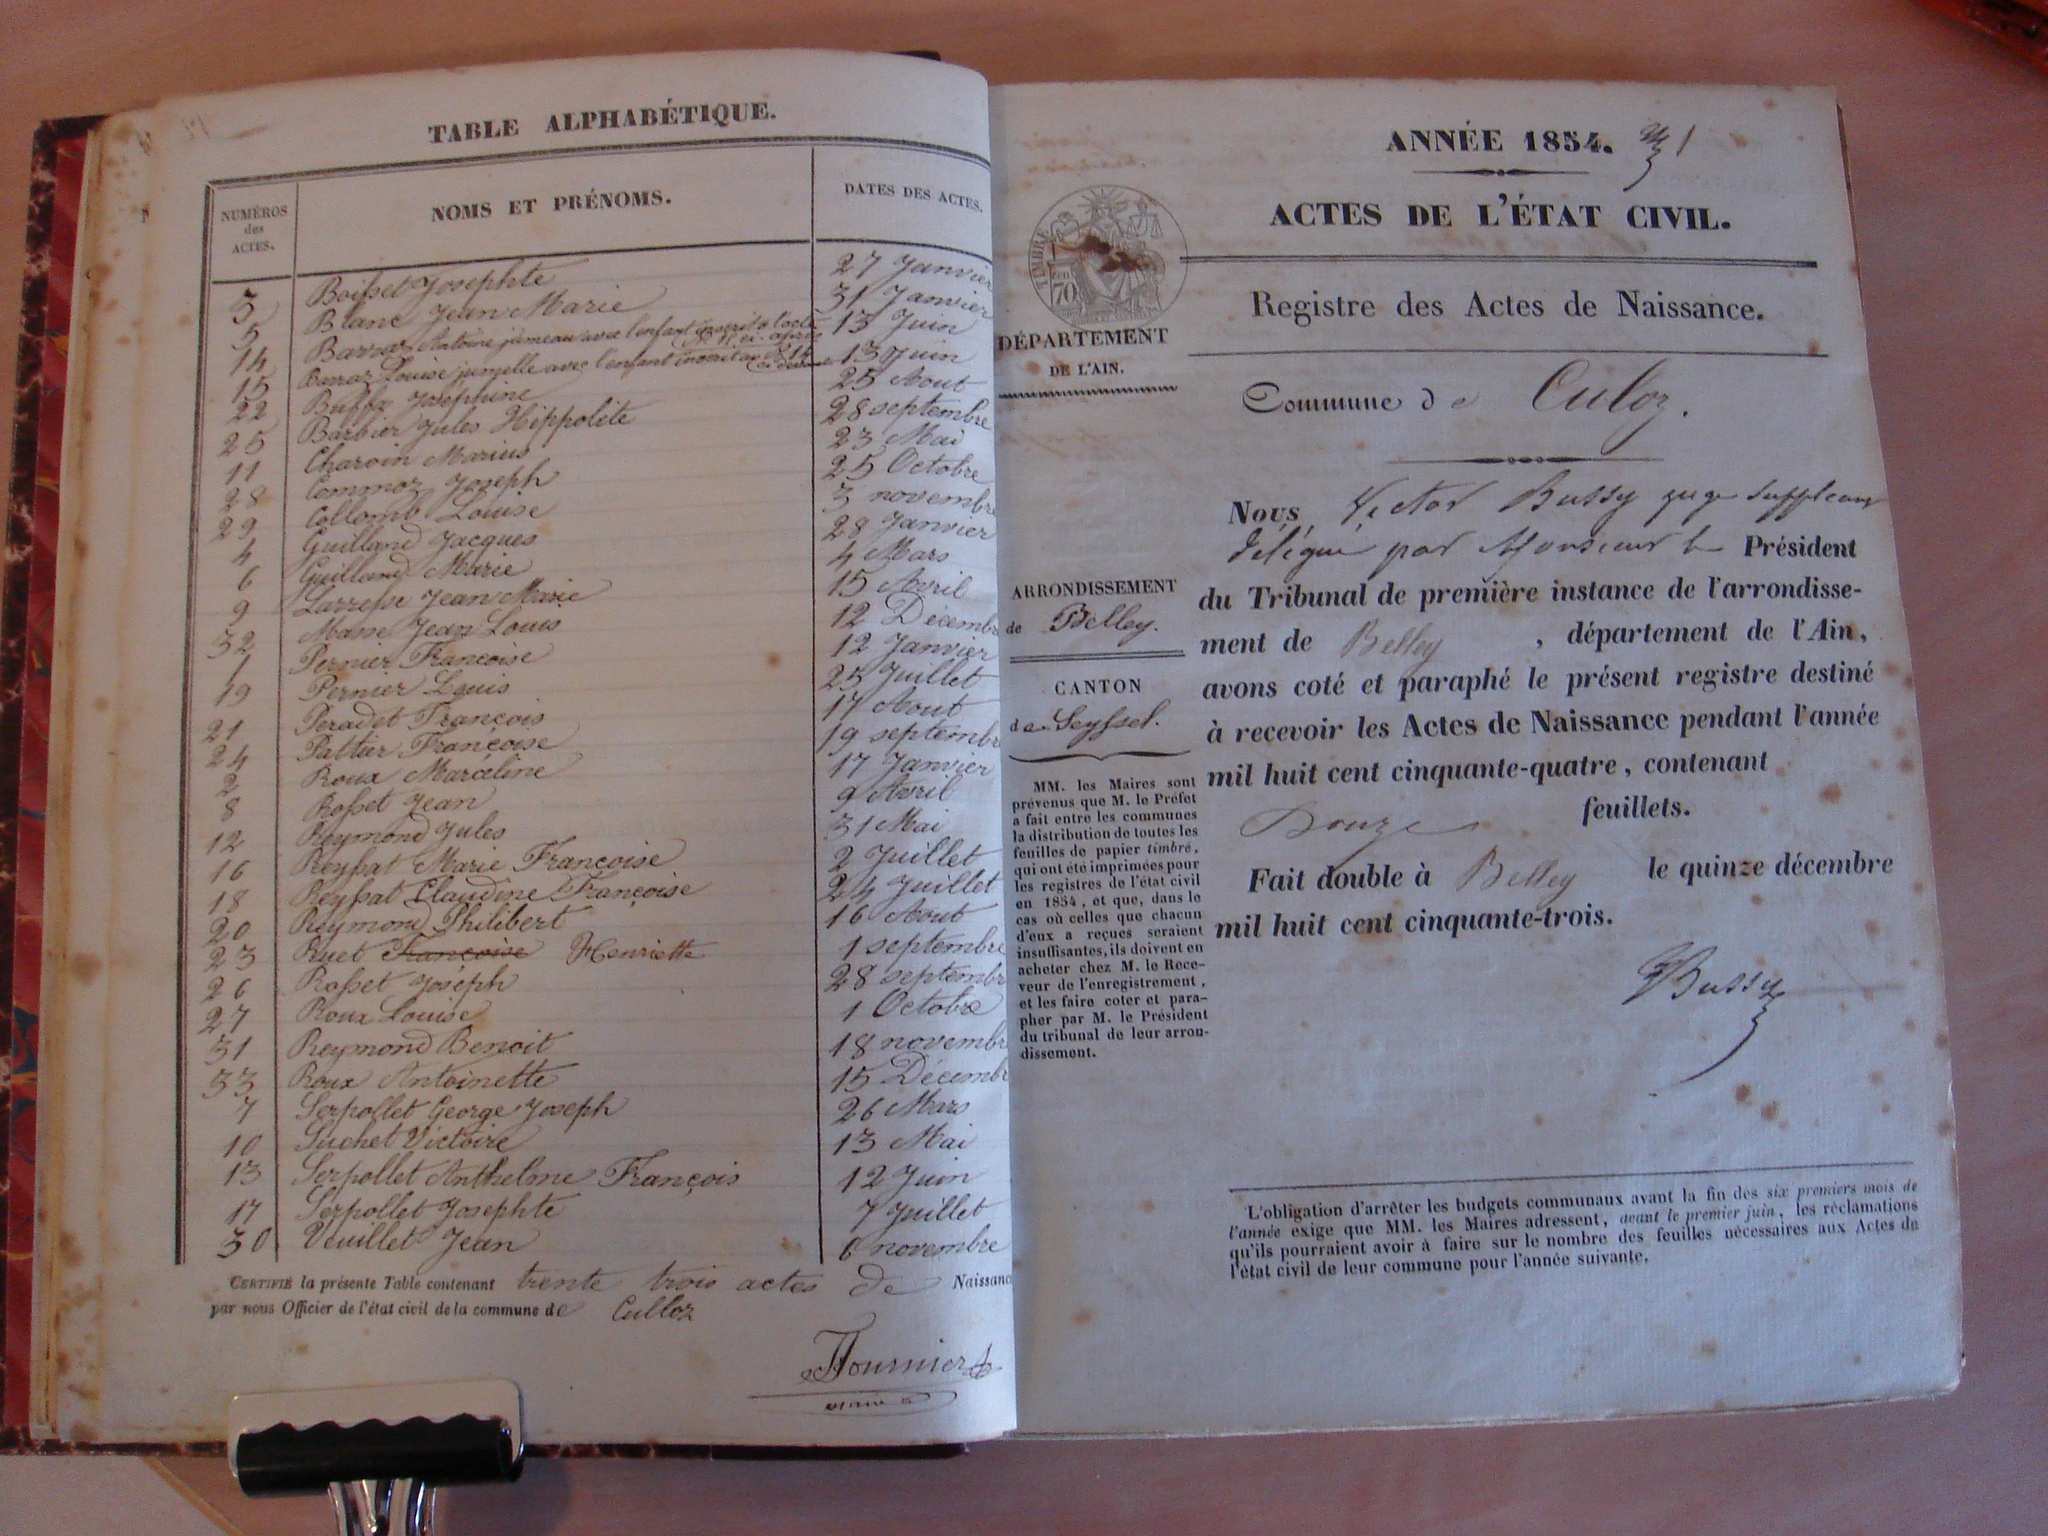 TABLE ALPHABÉTIQUE.
NUMÉROS des ACTES. NOMS ET PRÉNOMS. DATES DES ACTES.
3 Boisset Josephte 27 Janvier
5 Blanc Jean Marie 31 Janvier
14 Barraz Antoine jumeau avec l'enfant inscrit à l'acte 13 Juin
15 Barraz Louise jumelle avec l'enfant inscrit au N° 14 13 Juin
22 Buffa Joséphine 25 Aout
25 Barbier Jules Hippolite 28 septembre
11 Charvin Marius 23 Mai
28 Commoz Joseph 25 Octobre
29 Collomb Louise 3 novembre
4 Guilland Jacques 28 Janvier
6 Guilland Marie 4 Mars
9 Jean Marie 15 Avril
32 Masse Jean Louis 12 Décembre
1 Pernier Françoise 12 Janvier
19 Pernier Louis 25 Juillet
21 Peradet François 17 Aout
24 Pattier Françoise 19 septembre
2 Roux Marceline 17 Janvier
8 Rosset Jean 9 Avril
12 Reymond Jules 31 Mai
16 Reyssat Marie Françoise 2 Juillet
18 Reyssat Claudine Françoise 24 Juillet
20 Reymond Philibert 16 Aout
23 Ruet Françoise Henriette 1 septembre
26 Rosset Joséph 28 septembr
27 Roux Louise 1 Octobre
31 Reymond Benoit 18 novembr
33 Roux Antoinette 15 Décemb
7 Serpollet George Joseph 26 Mars
10 Suchet Victoire 13 Mai
13 Serpollet Anthelme François 12 Juin
17 Serpollet Josephte 7 Juillet
30 Veuillet Jean 6 novembre
CERTIFIÉ la présente Table contenant trente trois actes de Naissanc
par nous Officier de l'état civil de la commune de Culloz
Fournier
maire
ANNÉE 1854. 1
ACTES DE L'ÉTAT CIVIL.
TIMBRE
70
Registre des Actes de Naissance.
DÉPARTEMENT
DE L'AIN.
Commune de Culoz.
Nous, Victor Bussy juge suppléant
délégué par Monsieur le Président
du Tribunal de première instance de l'arrondisse-
ment de Belley, département de l'Ain,
avons coté et paraphé le présent registre destiné
à recevoir les Actes de Naissance pendant l'année
mil huit cent cinquante-quatre, contenant
Douze feuillets.
Fait double à Belley le quinze décembre
mil huit cent cinquante-trois.
Bussy
ARRONDISSEMENT
de Belley.
CANTON
de Seyssel.
MM. les Maires sont
prévenus que M. le Préfet
a fait entre les communes
la distribution de toutes les
feuilles de papier timbré,
qui ont été imprimées pour
les registres de l'état civil
en 1854, et que, dans le
cas où celles que chacun
d'eux a reçues seraient
insuffisantes, ils doivent en
acheter chez M. le Rece-
veur de l'enregistrement,
et les faire coter et para-
pher par M. le Président
du tribunal de leur arron-
dissement.
L'obligation d'arrêter les budgets communaux avant la fin des six premiers mois de
l'année exige que MM. les Maires adressent, avant le premier juin, les réclamations
qu'ils pourraient avoir à faire sur le nombre des feuilles nécessaires aux Actes de
l'état civil de leur commune pour l'année suivante.